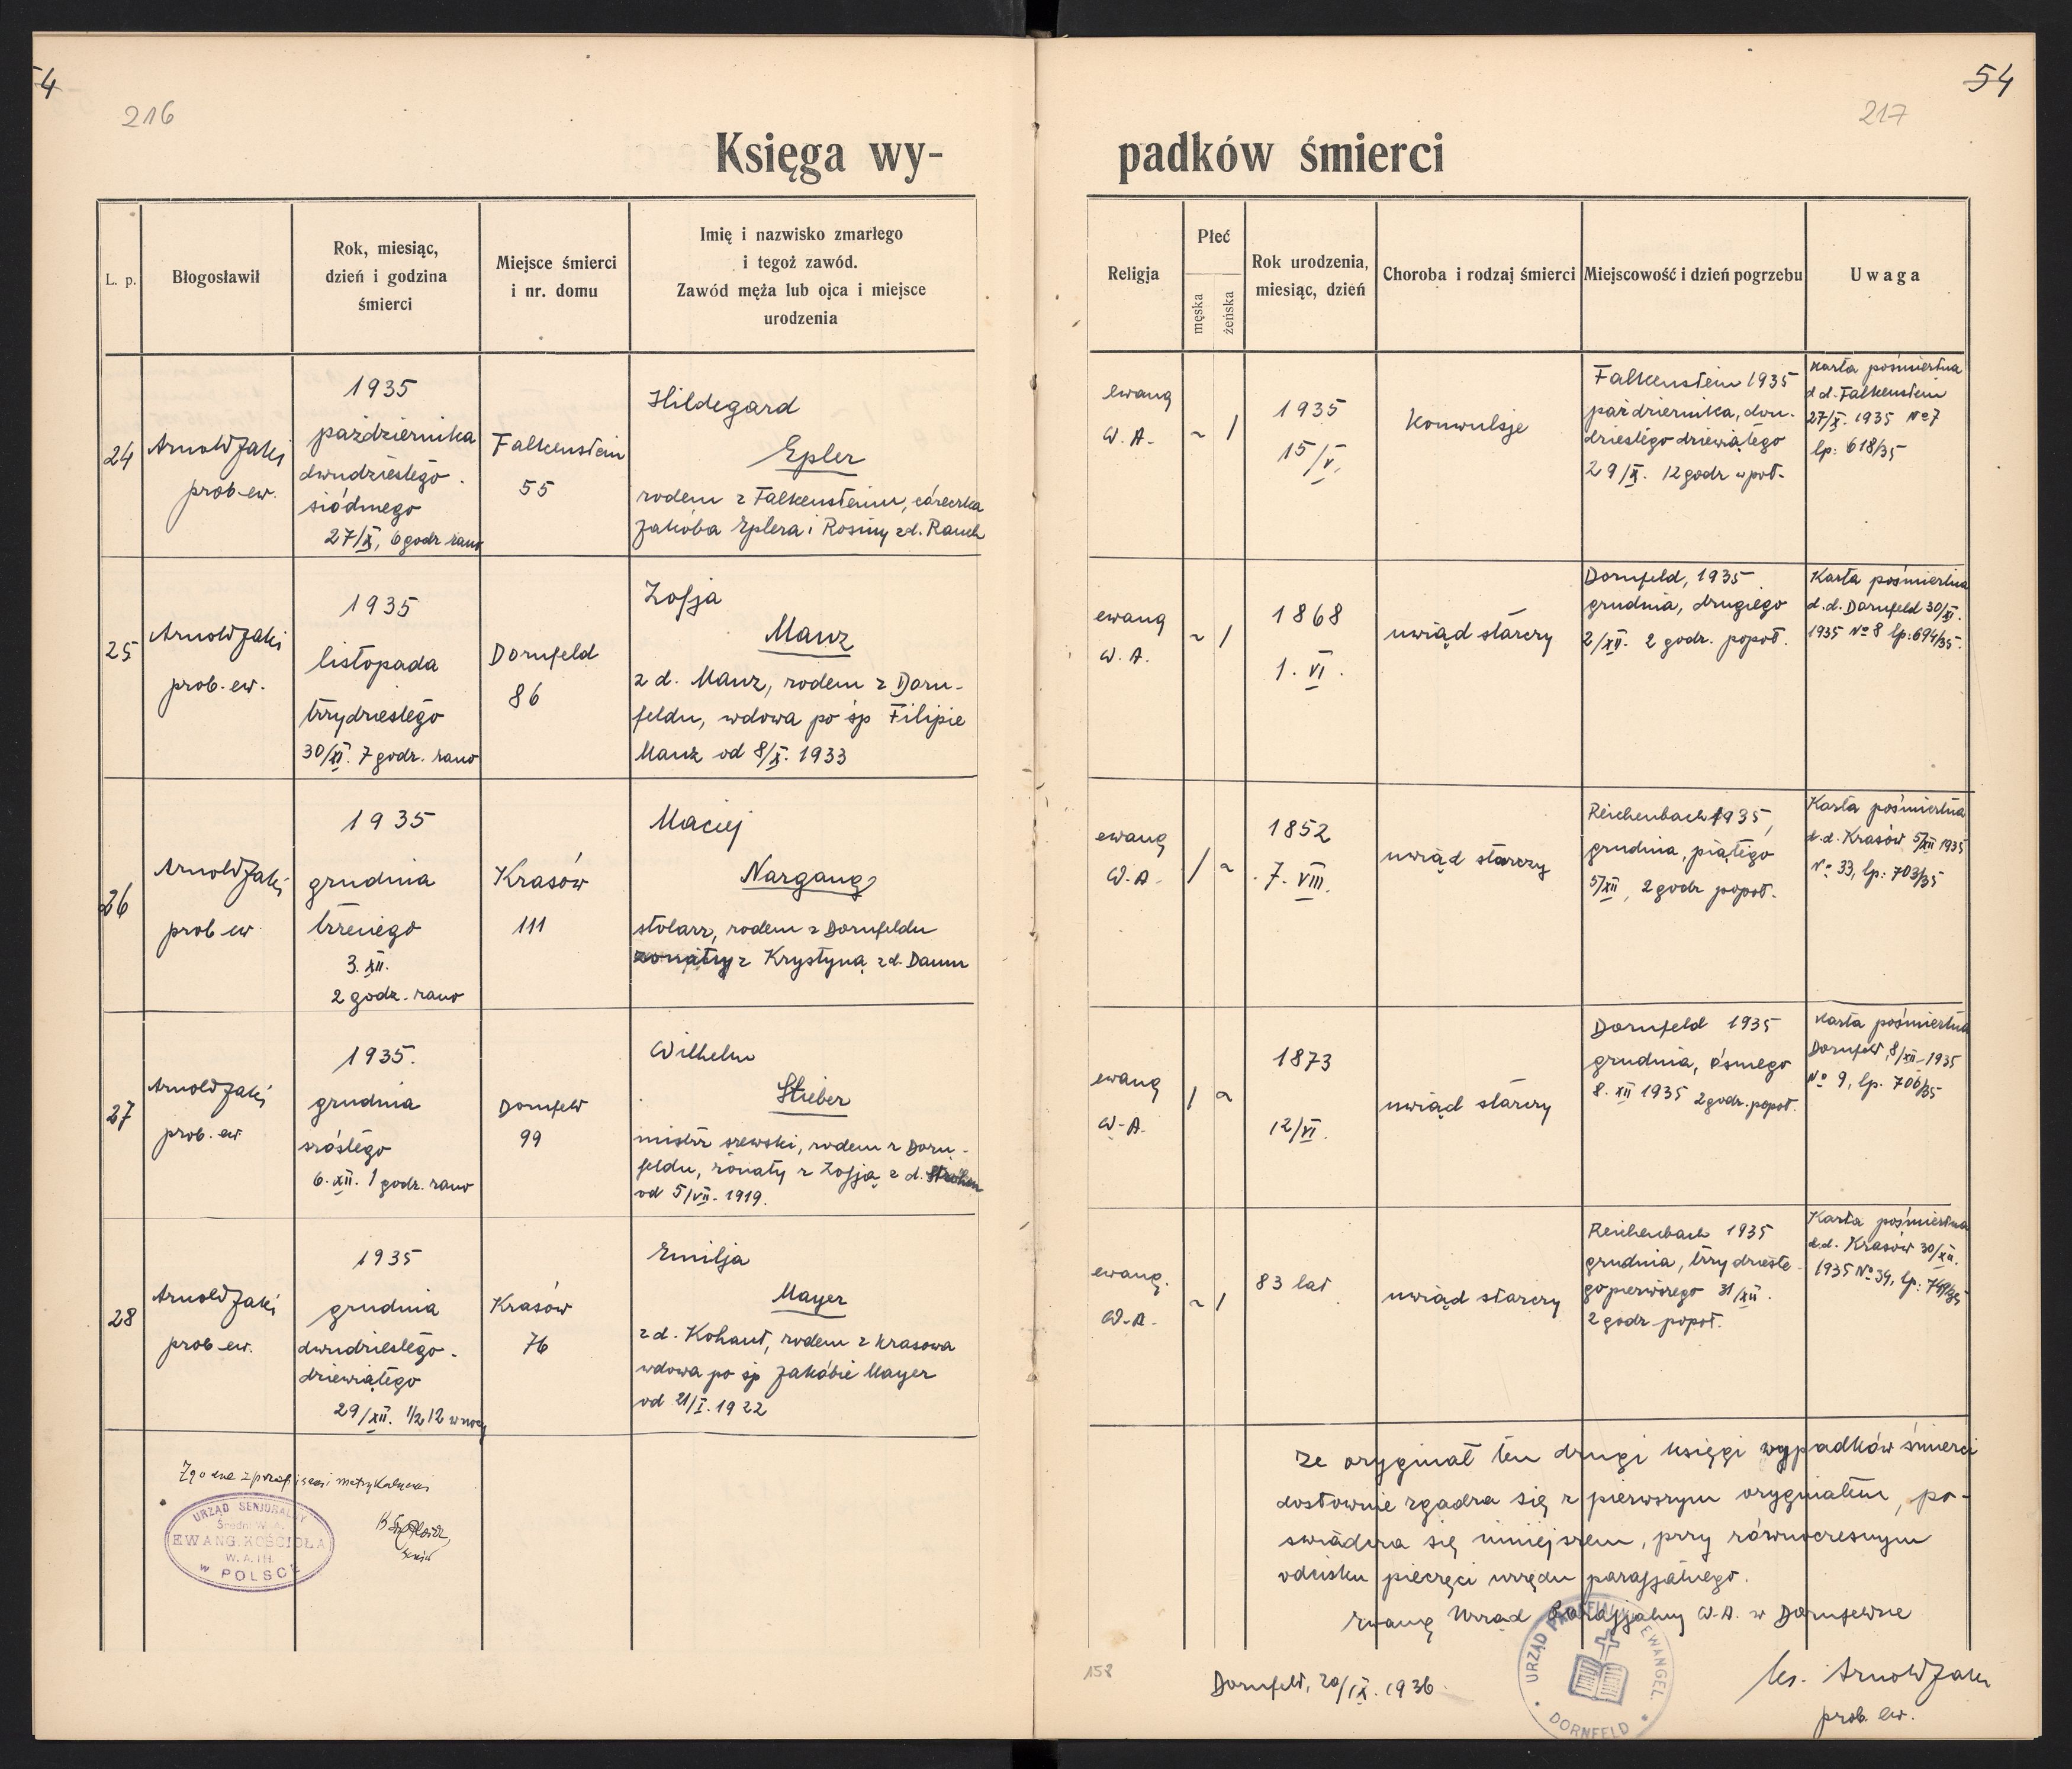 54
216
217
54
Księga wy-
padków śmierci
L. p.
Błogosławił
Rok, miesiąc,
dzień i godzina
śmierci
Miejsce śmierci
i nr. domu
Imię i nazwisko zmarłego
i tegoż zawód.
Zawód męża lub ojca i miejsce
urodzenia
Religja
Płeć
męska
żeńska
Rok urodzenia,
miesiąc, dzień
Choroba i rodzaj śmierci
Miejscowość i dzień pogrzebu
Uwaga
24
Arnold Jaki
prob. ew.
1935
października
dwudziestego
siódmego
27/X, 6 godz rano
Falkenstein
55
Hildegard
Epler
rodem z Falkensteinu, córeczka
Jakóba Eplera i Rosiny zd. Rauch
ewang
W. A.
~ /
1935
15/V.
Konwulsje
Falkenstein 1935
października, dwu-
dziestego dziewiątego
29/X. 12 godz w poł.
Karta pośmiertna
d d. Falkenstein
27/X. 1935 No 7
lp: 618/35
25
Arnold Jaki
prob. ew.
1935
listopada
trzydziestego
30/XI. 7 godz. rano
Dornfeld
86
Zofja
Manz
z d. Manz, rodem z Dorn-
feldu, wdowa po śp Filipie
Manz od 8/X. 1933
ewang
W. A.
~ /
1868
1. VI.
uwiąd starczy
Dornfeld, 1935
grudnia, drugiego
2/XII. 2 godz. popoł.
Karta pośmiertna
d. d. Dornfeld 30/XI.
1935 No 8 lp: 694/35.
26
Arnold Jaki
prob ew
1935
grudnia
trzeciego
3. XII.
2 godz. rano
Krasów
111
Maciej
Nargang
stolarz, rodem z Dornfeldu
żonaty z Krystyną zd. Daum
ewang
W. A.
/ ~
1852
7. VIII.
uwiąd starczy
Reichenbach 1935,
grudnia, piątego
5/XII, 2 godz popoł.
Karta pośmiertna
d. d. Krasów 5/XII 1935
No 33, lp: 703/35
27
Arnold Jaki
prob. ew
1935.
grudnia
szóstego
6. XII. 1 godz. rano
Dornfeld
99
Wilhelm
Stieber
mistrz szewski, rodem z Dorn-
feldu, żonaty z Zofją z d.
od 5/VII. 1919.
ewang
W. A.
/ ~
1873
12/VI.
uwiąd starczy
Dornfeld 1935
grudnia, ósmego
8. XII 1935 2 godz. popoł.
Karta pośmiertna
Dornfeld, 8/XII 1935
No 9, lp. 706/35
28
Arnold Jaki
prob ew.
1935
grudnia
dwudziestego-
dziewiątego
29/XII. 1/2 12 w nocy
Krasów
76
Emilja
Mayer
z d. Kohaut, rodem z Krasowa
wdowa po śp Jakóbie Mayer
od 21/I. 1922
ewang.
W. A.
~ /
83 lat
uwiąd starczy
Reichenbach 1935
grudnia, trzydzieste-
gopierwszego 31/XII.
2 godz popoł.
Karta pośmiertna
d.d. Krasów 30/XII.
1935 No 34, lp: 749/35
Zgodne z przepisami metrykalnemi
URZĄD SENJORALNY
EWANG. KOŚCIOŁA
W. A. I H.
w POLSCE
Że oryginał ten drugi księgi wypadków śmierci
dosłownie zgadza się z pierwszym oryginałem, po-
świadcza się niniejszem, przy równoczesnym
odcisku pieczęci urzędu parafjalnego.
Ewang Urząd Parafjalny W. A. w Dornfeldzie
URZĄD PARAFIALNY EWANGEL.
DORNFELD
158
Dornfeld, 20/IX. 1936.
ks. Arnold Jaki
prob. ew.